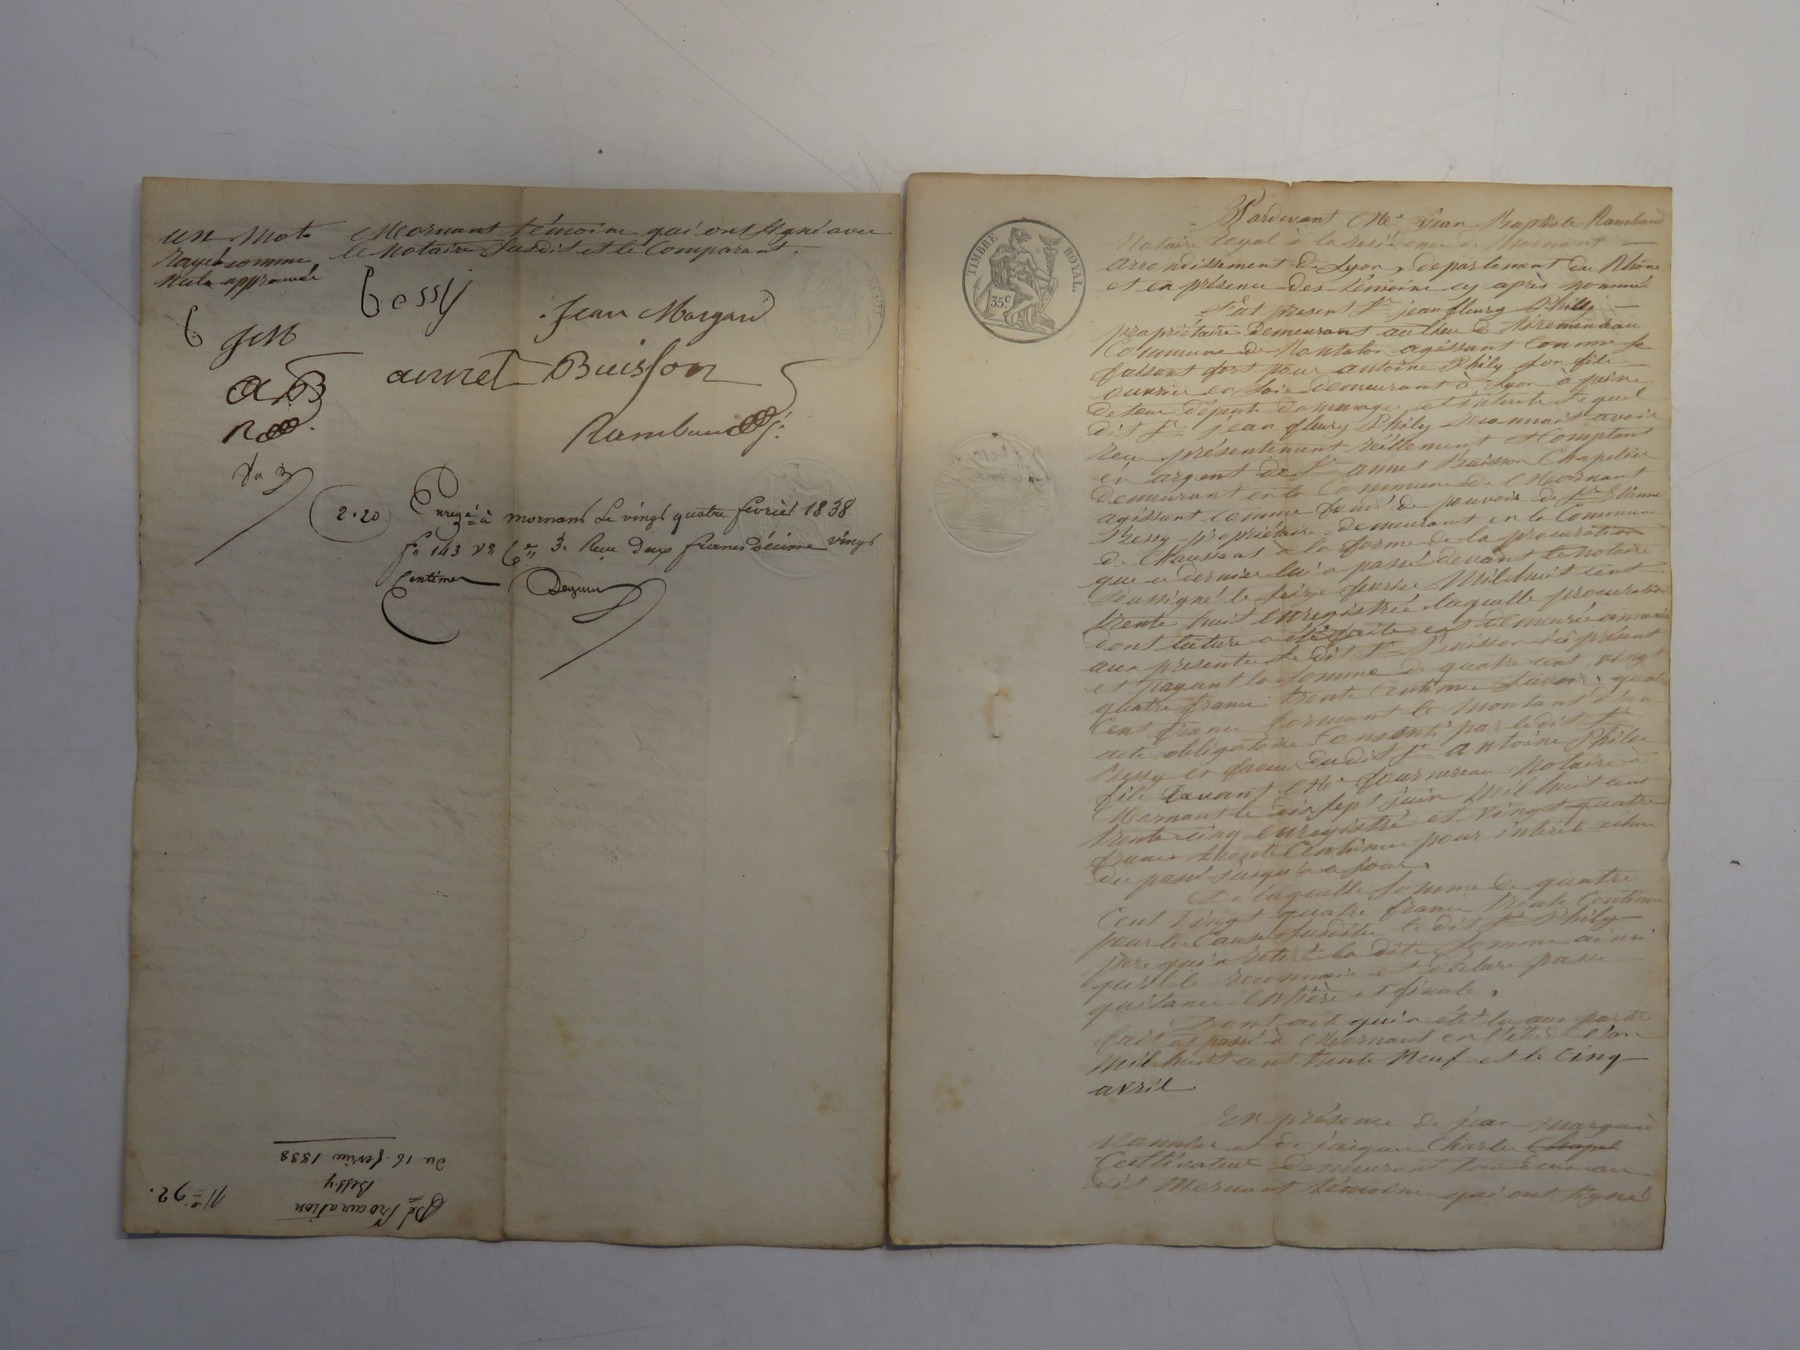 un mot
Rayé comme
Nul approuvé
Mornant témoins qui ont signé avec
le Notaire susdit et le Comparant.
Bessy
Jean Margard
B
JM
annet Buisson
aB
Rambaud
R
2.20
Enregé à mornant le vingt quatre février 1838
fo 143 Vo Ce 3. Reçu deux francs Décime vingt
Centimes
No 92.
Pd Procuration
Bessy
du 16 fevrier 1838
TIMBRE ROYAL.
35c
Pardevant Me Jean Baptiste Rambaud
Notaire Royal à la residence de Mornant
arrondissement de Lyon, departement du Rhône
et en présence des témoins cy après nommés
fut present Sr jean fleury Philly
propriétaire demeurant au lieu de
Commune de agissant comme se
faisant fort pour antoine Phily son fils
ouvrier en soie demeurant à Lyon à peine
de tous dépents domages et interets lequel
dit Sr jean fleury Phily reconnait avoir
reçu présentement réellement et Comptant
en argent de Sr annet Buisson Chapelier
demeurant en la Commune de Mornant
agissant comme fondé de pouvoir de Sr Etienne
Bessy propriétaire demeurant en la Commune
de Chaussant à la forme de la procuration
que ce dernier lui a passé devant le notaire
soussigné le seize fevrier Mil huit cent
trente huit enregistrée laquelle procuration
dont lecture a été faite est demeurée annexée
aux presentes le dit Sr Buisson ici présent
et payant la somme de quatre cent vingt
quatre francs trente Centimes savoir, quatre
Cent francs formant le montant d'un
acte obligatoire Consenti par le dit Sr
Bessy en faveur du dit Sr antoine Phily
fils devant Me fournereau Notaire à
Mornant le dix sept juin Mil huit cent
trente cinq enregistré et vingt quatre
francs trente Centimes pour interets echus
du passé jusqu'à ce jour.
De laquelle somme de quatre
Cent vingt quatre francs trente Centimes
pour les Causes susdites le dit Sr Phily
père qui a retiré la dite somme ainsi
qu'il le reconnait et déclare passe
quitance Entière et finale.
Dont acte qui a été lu aux parties
fait et passé à Mornant en l'étude l'an
Mil huit cent trente Neuf et le Cinq
avril
En présence de jean margard
et de jacques Charles
Cultivateur demeurant tous deux au
dit Mornant témoins qui ont signé